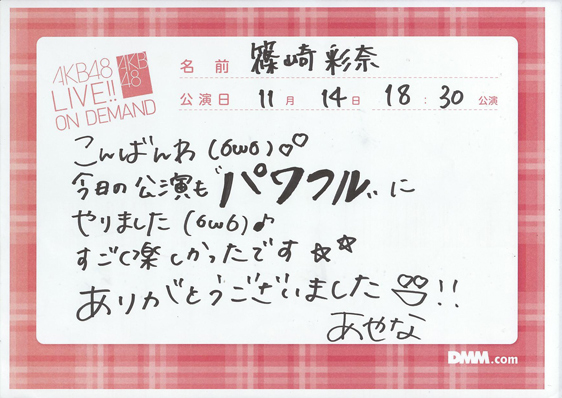 AKB48
LIVE!!
ON DEMAND
AKB
48
名前 篠崎 彩奈
公演日 11月 14日 18:30 公演
こんばんわ(6w6)♡♡
今日の公演も"パワフル"に
やりました(6w6)♪
すごく楽しかったです☆☆
ありがとうございました!!
あやな
DMM.com